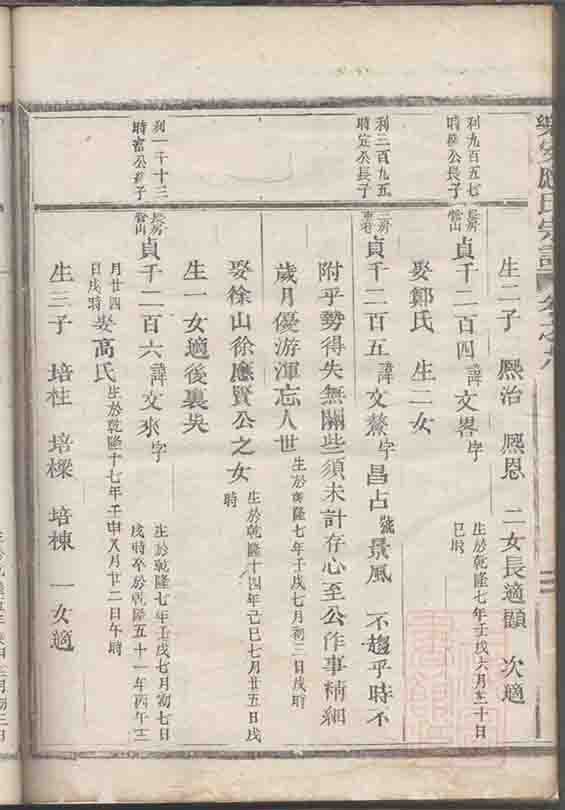 生二子 熈治 熈恩 二女長適顯 次適
利九百五七
時 公長子
長房
管山
貞千二百四 諱文畧 字
生於乾隆七年壬戌六月三十日
巳時
娶鄭氏 生二女
利三百九五
時定公長子
貞千二百五 諱文釐 字昌占 號景風 不趨乎時不
附乎勢得失無關些須未計存心至公作事精細
歲月優游渾忘人世
生於乾隆七年壬戌七月初三日戌時
娶徐山徐應賢公之女
生於乾隆十四年己巳七月廿五日戌
時
生一女適後裏吳
利一千十三
時富公長子
長房
管山
貞千二百六 諱文來 字
生於乾隆七年壬戌七月初七日
戌時卒於乾隆五十一年丙午三
月廿四
日戌時
娶高氏
生於乾隆十七年壬申八月廿二日午時
生三子 培柱 培樑 培棟 一女適